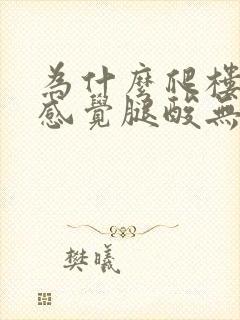 為什麼爬樓
感覺腿酸無
樊曦